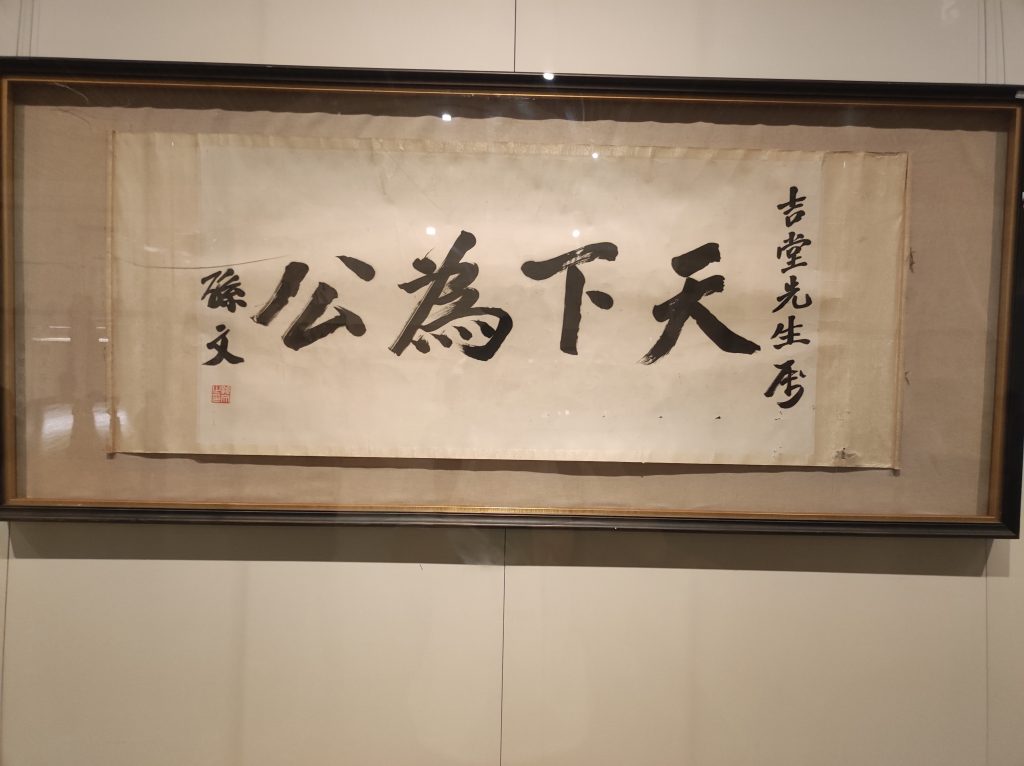 吉堂先生属
天下為公
孫文